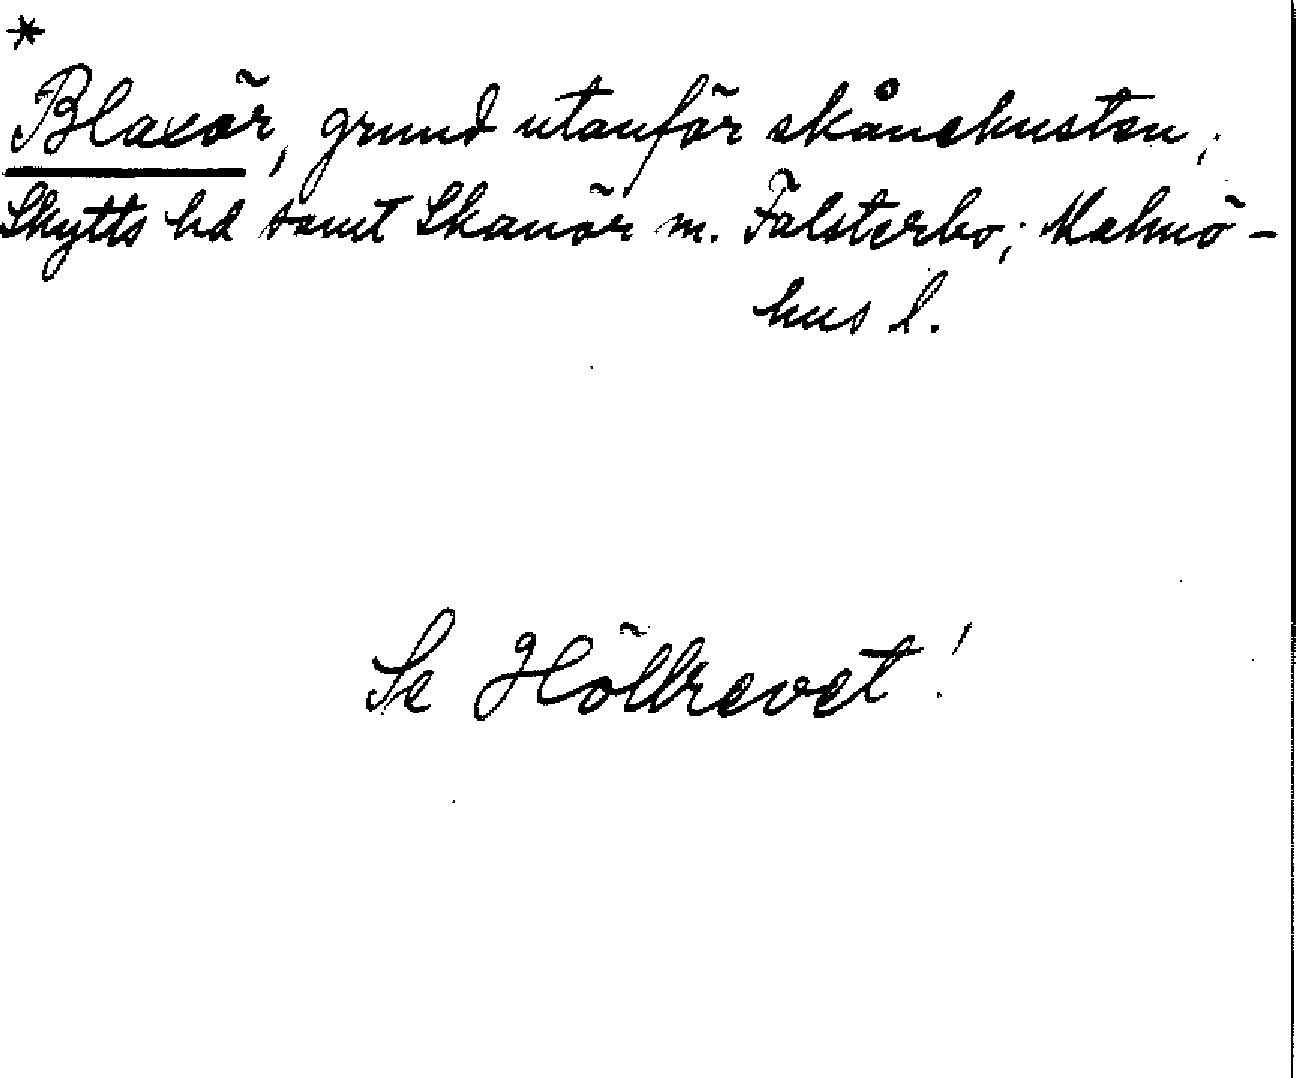 *
Blaxör, grund utanför skånekusten;
Skytts hd samt Skanör m. Falsterbo; Malmö-
hus l.
Se Höllrevet!